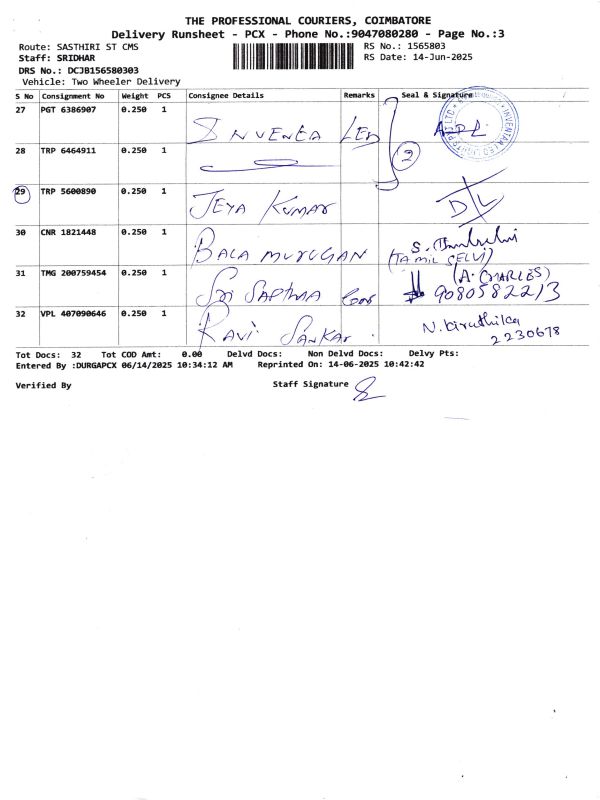 THE PROFESSIONAL COURIERS, COIMBATORE
Delivery Runsheet - PCX - Phone No.:9047080280 - Page No.:3
Route: SASTHIRI ST CMS RS No.: 1565803
Staff: SRIDHAR RS Date: 14-Jun-2025
DRS No.: DCJB156580303
Vehicle: Two Wheeler Delivery
S No Consignment No Weight PCS Consignee Details Remarks Seal & Signature
27 PGT 6386907 0.250 1 INVENTA LED
28 TRP 6464911 0.250 1 2
29 TRP 5600890 0.250 1 JEYA KUMAR D/L
30 CNR 1821448 0.250 1 BALA MURUGAN
(TAMIL SELVI)
31 TMG 200759454 0.250 1 SRI SAPTHA (A. CHARLES)
9080582213
32 VPL 407090646 0.250 1 RAVI SANKAR N. Kiruthika
2230678
Tot Docs: 32 Tot COD Amt: 0.00 Delvd Docs: Non Delvd Docs: Delvy Pts:
Entered By :DURGAPCX 06/14/2025 10:34:12 AM Reprinted On: 14-06-2025 10:42:42
Verified By Staff Signature